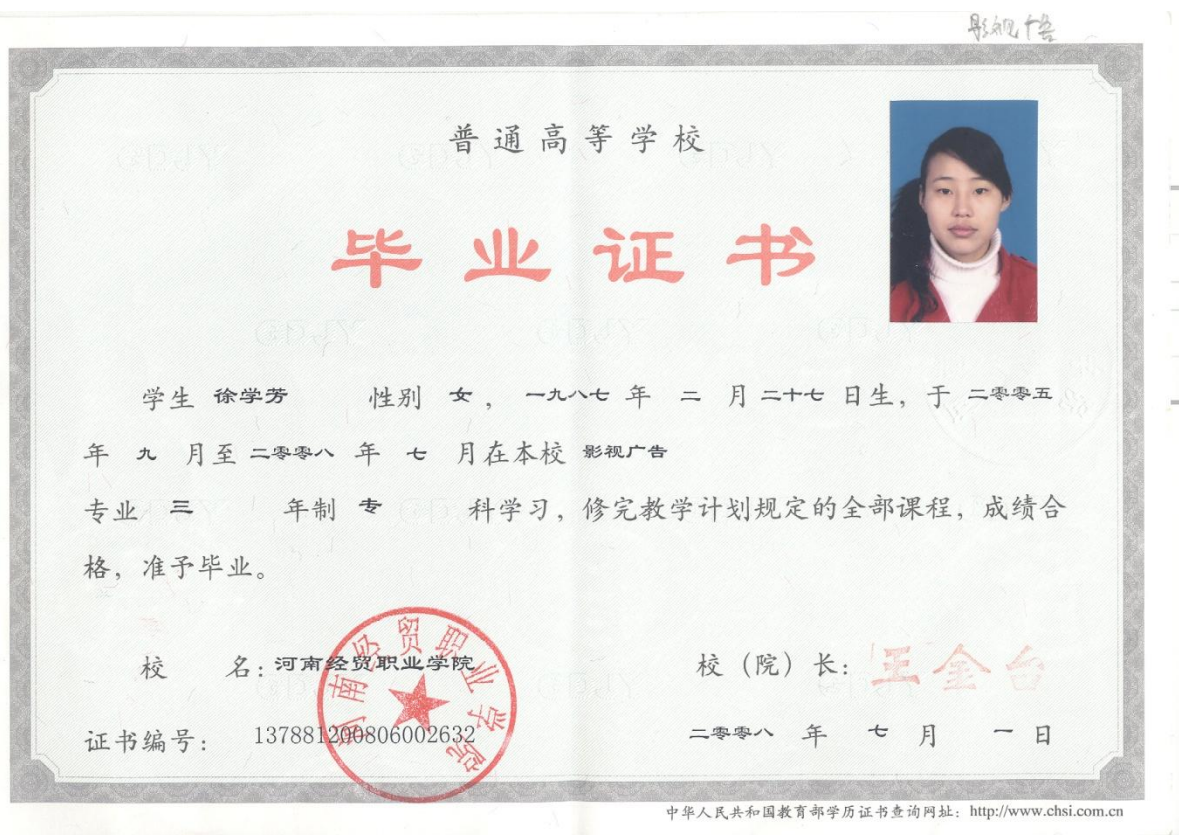 普通高等学校
毕业证书
学生 徐学芳 性别 女，一九八七 年 二 月 二十七 日生，于 二零零五
年 九 月至 二零零八 年 七 月在本校 影视广告
专业 三 年制 专 科学习，修完教学计划规定的全部课程，成绩合
格，准予毕业。
校 名：河南经贸职业学院
河南经贸职业学院
校（院）长：王金台
证书编号：137881200806002632
二零零八 年 七 月 一 日
中华人民共和国教育部学历证书查询网址：http://www.chsi.com.cn